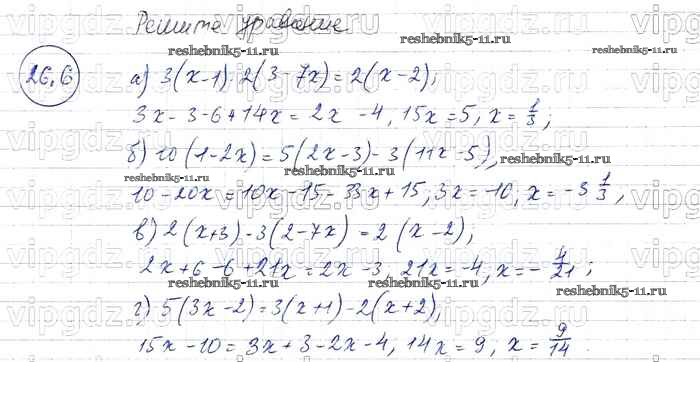 Решите уравнение.
reshebnik5-11.ru
26,6
а) 3(x-1)-2(3-7x)=2(x-2);
reshebnik5-11.ru
3x-3-6+14x=2x-4, 15x=5, x=1/3;
б) 10(1-2x)=5(2x-3)-3(11x-5),
reshebnik5-11.ru
reshebnik5-11.ru
10-20x=10x-15-33x+15, 3x=-10, x=-3 1/3,
в) 2(x+3)-3(2-7x)=2(x-2),
reshebnik5-11.ru
2x+6-6+21x=2x-3, 21x=-4, x=-4/21;
reshebnik5-11.ru
reshebnik5-11.ru
г) 5(3x-2)=3(x+1)-2(x+2),
reshebnik5-11.ru
15x-10=3x+3-2x-4, 14x=9, x=9/14.